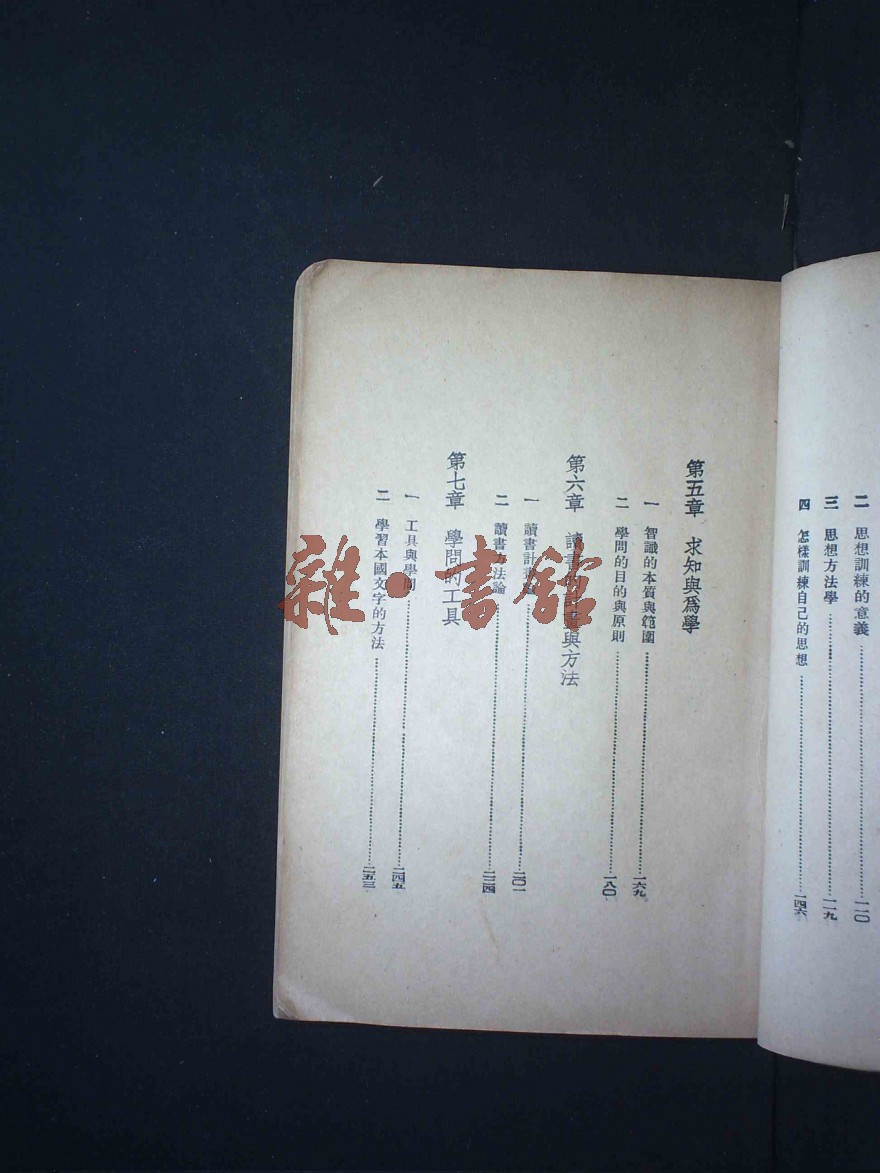 二 思想訓練的意義……一二〇
三 思想方法學……一一九
四 怎樣訓練自己的思想……一四六
第五章 求知與爲學
一 智識的本質與範圍……一六九
二 學問的目的與原則……一八〇
第六章 讀書的計畫與方法
一 讀書計畫論……二〇一
二 讀書方法論……二三四
第七章 學問的工具
一 工具與學問……二四五
二 學習本國文字的方法……二五三
雜·書館